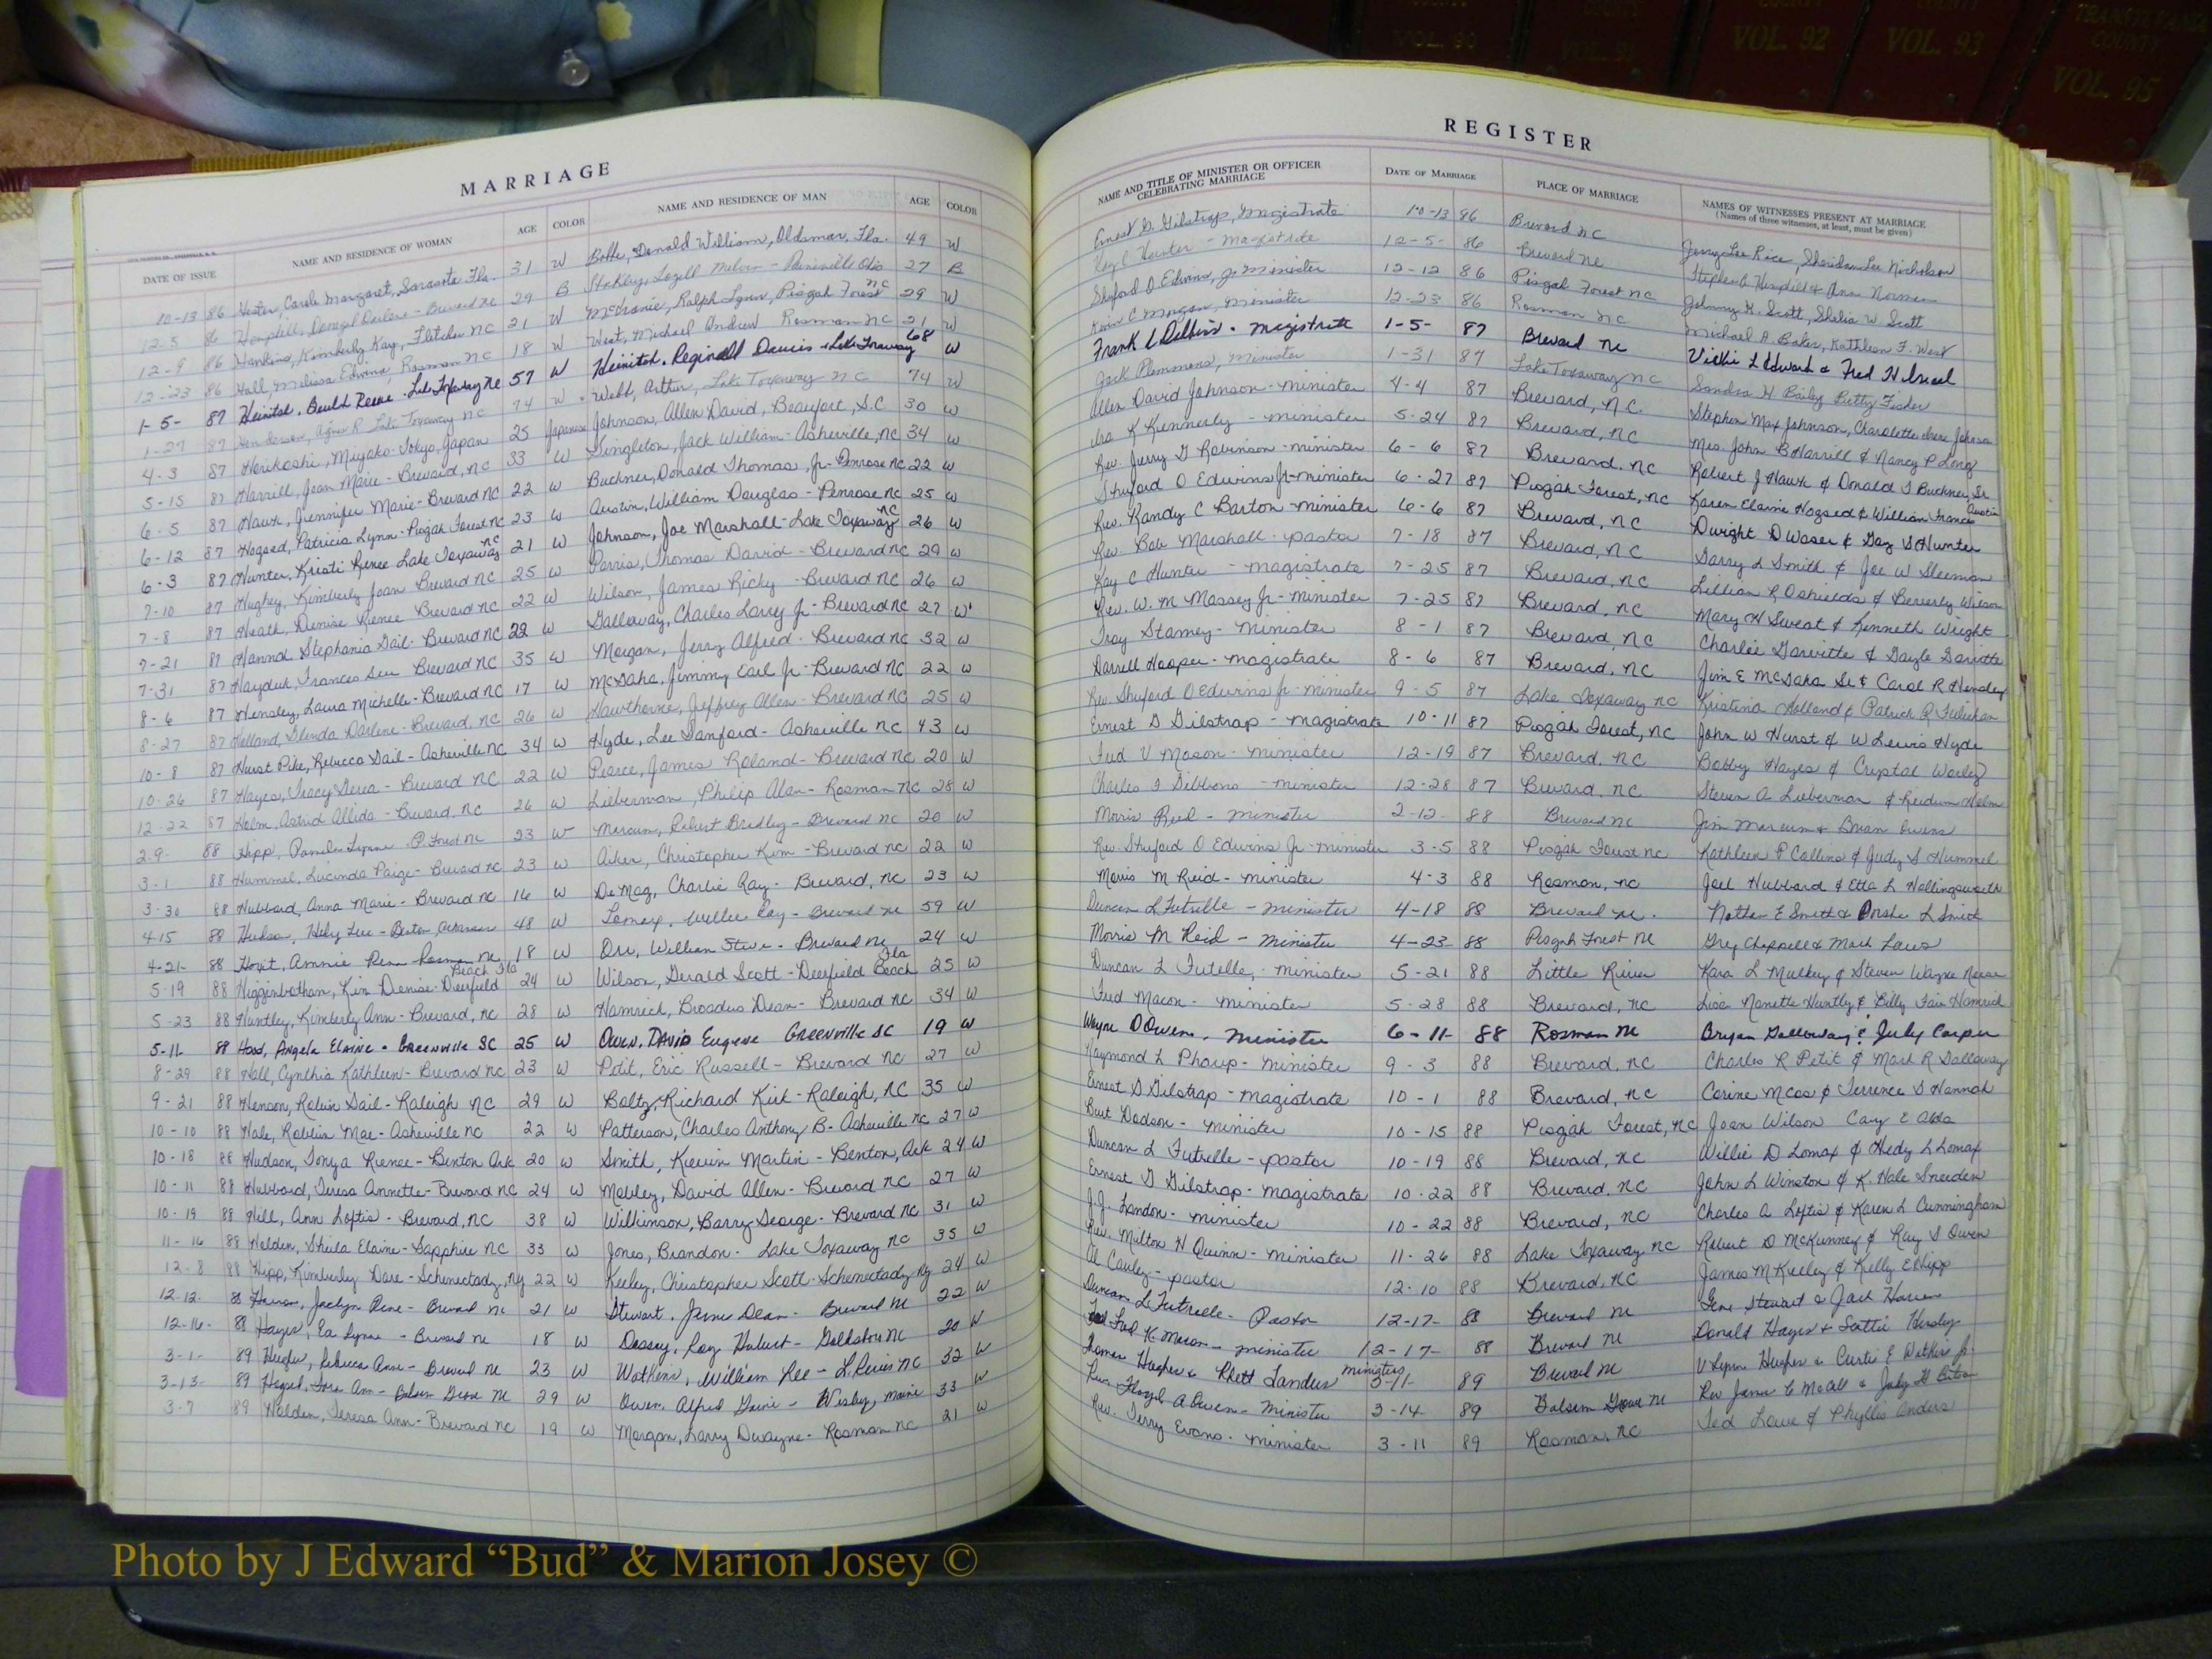 COUNTY
VOL. 92
COUNTY
VOL. 93
TRANSYLVANIA
COUNTY
VOL. 95
MARRIAGE
REGISTER
DATE OF ISSUE
NAME AND RESIDENCE OF WOMAN
AGE
COLOR
NAME AND RESIDENCE OF MAN
AGE
COLOR
NAME AND TITLE OF MINISTER OR OFFICER CELEBRATING MARRIAGE
DATE OF MARRIAGE
PLACE OF MARRIAGE
NAMES OF WITNESSES PRESENT AT MARRIAGE
(Names of three witnesses, at least, must be given)
10-13 86 Hester, Carole Margaret, Sarasota Fla. 31 W Bobb, Donald William, Oldsmar, Fla. 49 W Ernest G. Gilstrap, Magistrate 10-13 86 Brevard NC
12-5 86 Hemphill, Darlene - Brevard NC 29 B Melvin 27 B Kay C Hunter - Magistrate 12-5- 86 Brevard NC Jerry Lee Rice, Nicholson
12-9 86 Hawkins, Kimberly Kay, Fletcher NC 21 W Ralph Lynn, Pisgah Forest NC 29 W Shuford O Edwins, Jr Minister 12-12 86 Pisgah Forest NC
12-23 86 Hall, Melissa Edwina, Rosman NC 18 W West, Michael Andrew Rosman NC 21 W Morgan, Minister 12-23 86 Rosman NC Johnny H. Scott, Shelia W. Scott
1-5- 87 Heinitsh, Beulah Reese. Lake Toxaway NC 57 W Heinitsh, Reginald Davis Lake Toxaway 68 W Frank L . Magistrate 1-5- 87 Brevard NC Michael A. Baker, Kathleen F. West
1-27 87 Henderson, Agnes R Lake Toxaway NC 74 W Webb, Arthur, Lake Toxaway NC 74 W Jack Plemmons, Minister 1-31 87 Lake Toxaway NC Vickie L Edward & Fred H Israel
4-3 87 Horikoshi, Miyako-Tokyo, Japan 25 Japanese Johnson, Allen David, Beaufort, S.C 30 W Allen David Johnson - minister 4-4 87 Brevard, N.C. Sandra H Bailey Betty Fisher
5-15 87 Harrill, Jean Marie - Brevard, NC 33 W Singleton, Jack William - Asheville, NC 34 W Ira K Kennerly - minister 5-24 87 Brevard, NC Stephen Max Johnson, Johnson
6-5 87 Hawk, Jennifer Marie - Brevard NC 22 W Buchner, Donald Thomas, Jr - Penrose NC 22 W Rev. Jerry G Robinson - minister 6-6 87 Brevard, NC Mrs. John B Harrill & Nancy P Long
6-12 87 Hogsed, Patricia Lynn - Pisgah Forest NC 23 W Austin, William Douglas - Penrose NC 25 W Shuford O Edwins Jr - minister 6-27 87 Pisgah Forest, NC Robert J Hawk & Donald T Buchner, Sr
6-3 87 Hunter, Kristi Renee Lake Toxaway NC 21 W Johnson, Joe Marshall - Lake Toxaway NC 26 W Rev. Randy C Barton - minister 6-6 87 Brevard, NC Karen Elaine Hogsed & William Francis Austin
7-10 87 Hughey, Kimberly Joan Brevard NC 25 W Parris, Thomas David - Brevard NC 29 W Rev. Bob Marshall - pastor 7-18 87 Brevard, NC Dwight D Waser & Gay S Hunter
7-8 87 Heath, Denise Renee Brevard NC 22 W Wilson, James Ricky - Brevard NC 26 W Kay C Hunter - magistrate 7-25 87 Brevard, NC Garry L Smith & Joe W Sleeman
7-21 87 Hannah Stephanie Gail - Brevard NC 22 W Galloway, Charles Larry Jr - Brevard NC 27 W Rev. W. M Massey Jr - minister 7-25 87 Brevard, NC Lillian R Oshields & Beverly Wilson
7-31 87 Hayduk, Frances Sue Brevard NC 35 W Morgan, Jerry Alfred - Brevard NC 32 W Troy Stamey - Minister 8-1 87 Brevard, NC Mary H Sweat & Kenneth Wright
8-6 87 Hensley, Laura Michelle - Brevard NC 17 W McGaha, Jimmy Earl Jr - Brevard NC 22 W Darrell Hooper - magistrate 8-6 87 Brevard, NC Charlie & Gayle
8-27 87 Holland, Glenda Darlene - Brevard, NC 26 W Hawthorne, Jeffrey Allen - Brevard NC 25 W Rev Shuford O Edwins Jr - minister 9-5 87 Lake Toxaway NC Jim E McGaha Sr & Carol R Hensley
10-8 87 Hurst Pike, Rebecca Gail - Asheville NC 34 W Hyde, Lee Sanford - Asheville NC 43 W Ernest G Gilstrap - magistrate 10-11 87 Pisgah Forest, NC Kristina Holland & Patrick R
10-26 87 Hayes, Tracy - Brevard NC 22 W Pierce, James Roland - Brevard NC 20 W Fred V Mason - minister 12-19 87 Brevard, NC John W Hurst & W Lewis Hyde
12-22 87 Helm, Astrid Allida - Brevard, NC 26 W Lieberman, Philip Alan - Rosman NC 28 W Charles Gibbons - minister 12-28 87 Brevard, NC Bobby Hayes & Crystal Worley
2-9- 88 Hipp, Pamela Lynne P. Forest NC 23 W Marcum, Robert Bradley - Brevard NC 20 W Morris Reid - minister 2-12- 88 Brevard NC Steven A Lieberman & Helm
3-1 88 Hummel, Lucinda Paige - Brevard NC 23 W Aiken, Christopher Kim - Brevard NC 22 W Rev. Shuford O Edwins Jr - minister 3-5 88 Pisgah Forest NC Jim Marcum & Brian Owens
3-30 88 Hubbard, Anna Marie - Brevard NC 16 W Charlie Ray - Brevard, NC 23 W Morris M Reid - minister 4-3 88 Rosman, NC Kathleen P Collins & Judy S Hummel
4-15 88 Hudson, Hedy Lee - Benton, Arkansas 48 W Lomax, Willie Ray - Brevard NC 59 W Duncan L Futrelle - minister 4-18 88 Brevard NC. Joel Hubbard & Etta L Hollingsworth
4-21- 88 Annie Rosman NC 18 W Orr, William Steve - Brevard NC 24 W Morris M Reid - Minister 4-23- 88 Pisgah Forest NC Nathan E Smith & L Smith
5-19 88 Higginbotham, Kim Denise - Deerfield Beach Fla 24 W Wilson, Gerald Scott - Deerfield Beach Fla 25 W Duncan L Futrelle, - minister 5-21 88 Little River Greg Chappell & Mack Laws
5-23 88 Huntley, Kimberly Ann - Brevard, NC 28 W Hamrick, Broadus Dean - Brevard NC 34 W Fred Macon - minister 5-28 88 Brevard, NC Kara L Mulkey & Steven Wayne Reese
5-11- 88 Hood, Angela Elaine - Greenville SC 25 W Owen, David Eugene Greenville SC 19 W Wayne D Owen, minister 6-11- 88 Rosman NC Lisa Nanette Huntley & Billy Fain Hamrick
8-29 88 Hall, Cynthia Kathleen - Brevard NC 23 W Petit, Eric Russell - Brevard NC 27 W Raymond L - Minister 9-3 88 Brevard, NC Bryan Galloway & July Casper
9-21 88 Henson, Robin Gail - Raleigh NC 29 W Boltz, Richard Kirk - Raleigh, NC 35 W Ernest G Gilstrap - magistrate 10-1 88 Brevard, NC Charles R Petit & Mark R Galloway
10-10 88 Hale, Robbin Mae - Asheville NC 22 W Patterson, Charles Anthony B - Asheville NC 27 W Burt Dodson - minister 10-15 88 Pisgah Forest, NC Corine McCos & Terrence S Hannah
10-18 88 Hudson, Tonya Renee - Benton Ark 20 W Smith, Kevin Martin - Benton, Ark 24 W Duncan L Futrelle - pastor 10-19 88 Brevard, NC Joan Wilson Cary E
10-11 88 Hubbard, Teresa Annette - Brevard NC 24 W Mobley, David Allen - Brevard NC 27 W Ernest G Gilstrap - magistrate 10-22 88 Brevard, NC Willie D Lomax & Hedy L Lomax
10-19 88 Hill, Ann Loftis - Brevard, NC 38 W Wilkinson, Barry George - Brevard NC 31 W J.J. Landon - minister 10-22 88 Brevard, NC John L Winston & K. Hale Sneeden
11-16 88 Holden, Sheila Elaine - Sapphire NC 33 W Jones, Brandon - Lake Toxaway NC 35 W Rev. Milton H Quinn - minister 11-26 88 Lake Toxaway NC Charles A Loftis & Karen L Cunningham
12-8 88 Hipp, Kimberly Dare - Schenectady, NY 22 W Keeley, Christopher Scott - Schenectady NY 24 W Al Cauley - pastor 12-10 88 Brevard, NC Robert D McKinney & Ray S Owen
12-12- 88 Jaclyn Rene - Brevard NC 21 W Stewart, Dean - Brevard NC 22 W Duncan L Futrelle - Pastor 12-17- 88 Brevard NC James M Keeley & Kelly E Hipp
12-16- 88 Hayes, Lynne - Brevard NC 18 W Dorsey, Roy Hubert - Goldsboro NC 20 W Fred K. Macon - minister 12-17- 88 Brevard NC Gene Stewart & Jack
3-1- 89 Hughes, Rebecca Anne - Brevard NC 23 W Watkins, William Lee - NC 32 W Thomas Hughes & Rhett Sanders ministers 3-11- 89 Brevard NC Donald Hayes & Scottie
3-13- 89 Ann - Balsam Grove NC 29 W Owen, Alfred - Maine 33 W Rev. Floyd A Owen - Minister 3-14- 89 Balsam Grove NC V Lynn Hughes & Curtis E Watkins Jr.
3-7 89 Holden, Teresa Ann - Brevard NC 19 W Morgan, Larry Dwayne - Rosman NC 21 W Rev. Terry Evans - minister 3-11 89 Rosman, NC Rev James C McCall & Judy
Ted Lowe & Phyllis Anders
Photo by J Edward “Bud” & Marion Josey ©